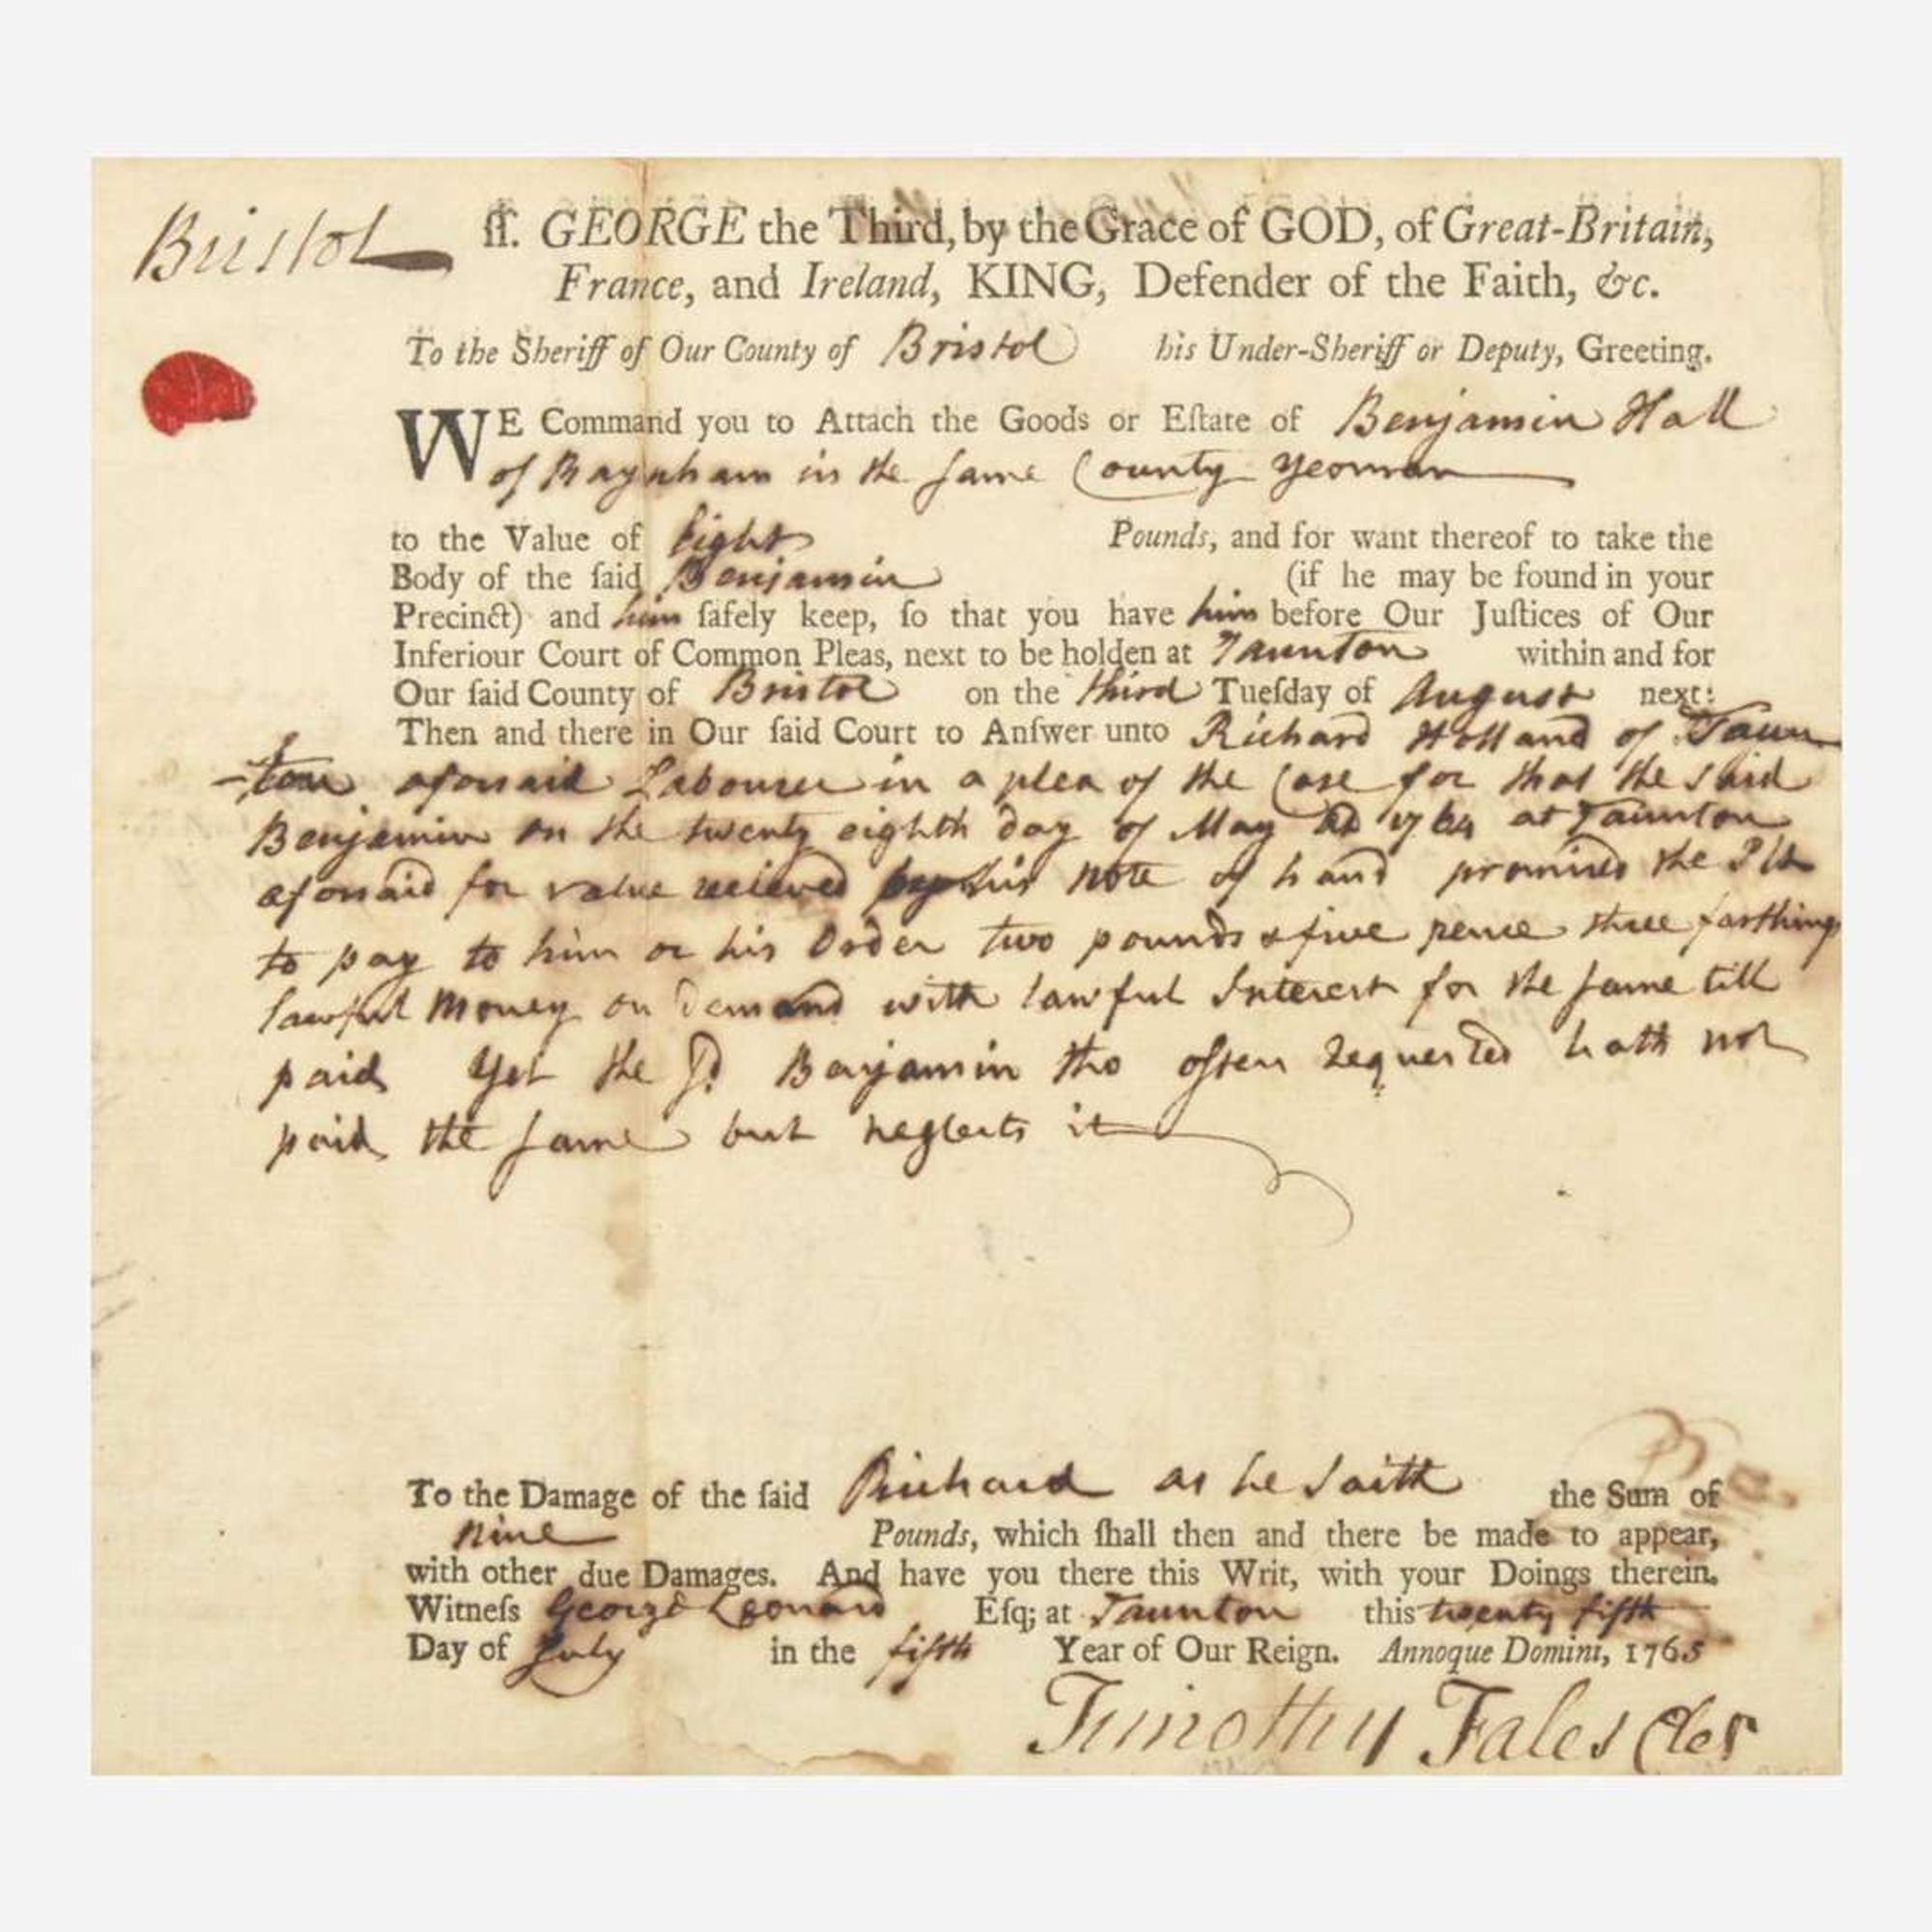 Bristol ſſ. GEORGE the Third, by the Grace of GOD, of Great-Britain,
France, and Ireland, KING, Defender of the Faith, &c.
To the Sheriff of Our County of Bristol his Under-Sheriff or Deputy, Greeting.
WE Command you to Attach the Goods or Eſtate of Benjamin Hall
of Raynham in the ſame County yeoman
to the Value of Eight Pounds, and for want thereof to take the
Body of the ſaid Benjamin (if he may be found in your
Precinct) and him ſafely keep, ſo that you have him before Our Juſtices of Our
Inferiour Court of Common Pleas, next to be holden at Taunton within and for
Our ſaid County of Bristol on the third Tueſday of August next:
Then and there in Our ſaid Court to Anſwer unto Richard Holland of Taun
-ton aforsaid Labourer in a plea of the Case for that the said
Benjamin on the twenty eighth day of May AD 1764 at Taunton
aforsaid for value recieved by his note of hand promised the Plt
to pay to him or his Order two pounds & five pence three farthings
lawful Money on Demand with lawful Interest for the ſame till
paid Yet the ſd Benjamin tho often requested hath not
paid the ſame but neglects it
To the Damage of the ſaid Richard as he Saith the Sum of
nine Pounds, which ſhall then and there be made to appear,
with other due Damages. And have you there this Writ, with your Doings therein.
Witneſs George Leonard Eſq; at Taunton this twenty fifth
Day of July in the fifth Year of Our Reign. Annoque Domini, 1765
Timothy Fales Cler